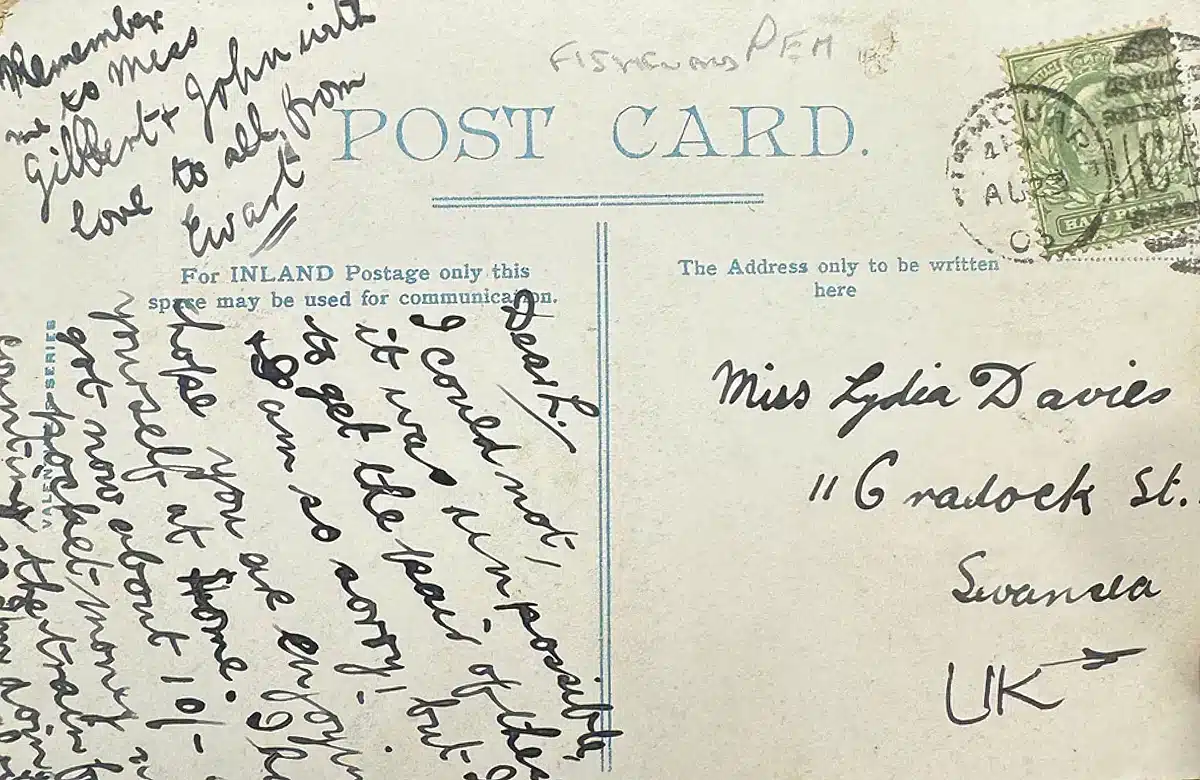 Remember
me to Miss
Gilbert + John with
love to all, from
Ewart
FISHGUARD PEM
POST CARD.
For INLAND Postage only this
space may be used for communication.
The Address only to be written
here
Dear L.
I could not,
it was unpossible,
to get the pair of them
but
I am so sorry!
I hope you are enjoying
yourself at Home. I
got now about 10/-
pocket-money
counting the train
VALENTINE'S SERIES
Miss Lydia Davies
11 Cradock St.
Swansea
UK
AU
HALF PENNY